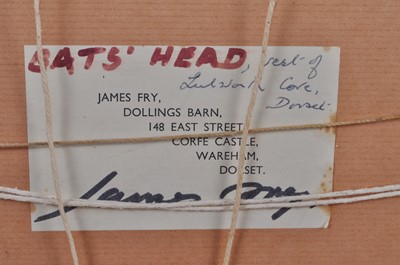 BATS' HEAD, west of
Lulworth Cove,
Dorset
JAMES FRY,
DOLLINGS BARN,
148 EAST STREET,
CORFE CASTLE,
WAREHAM,
DORSET.
James Fry